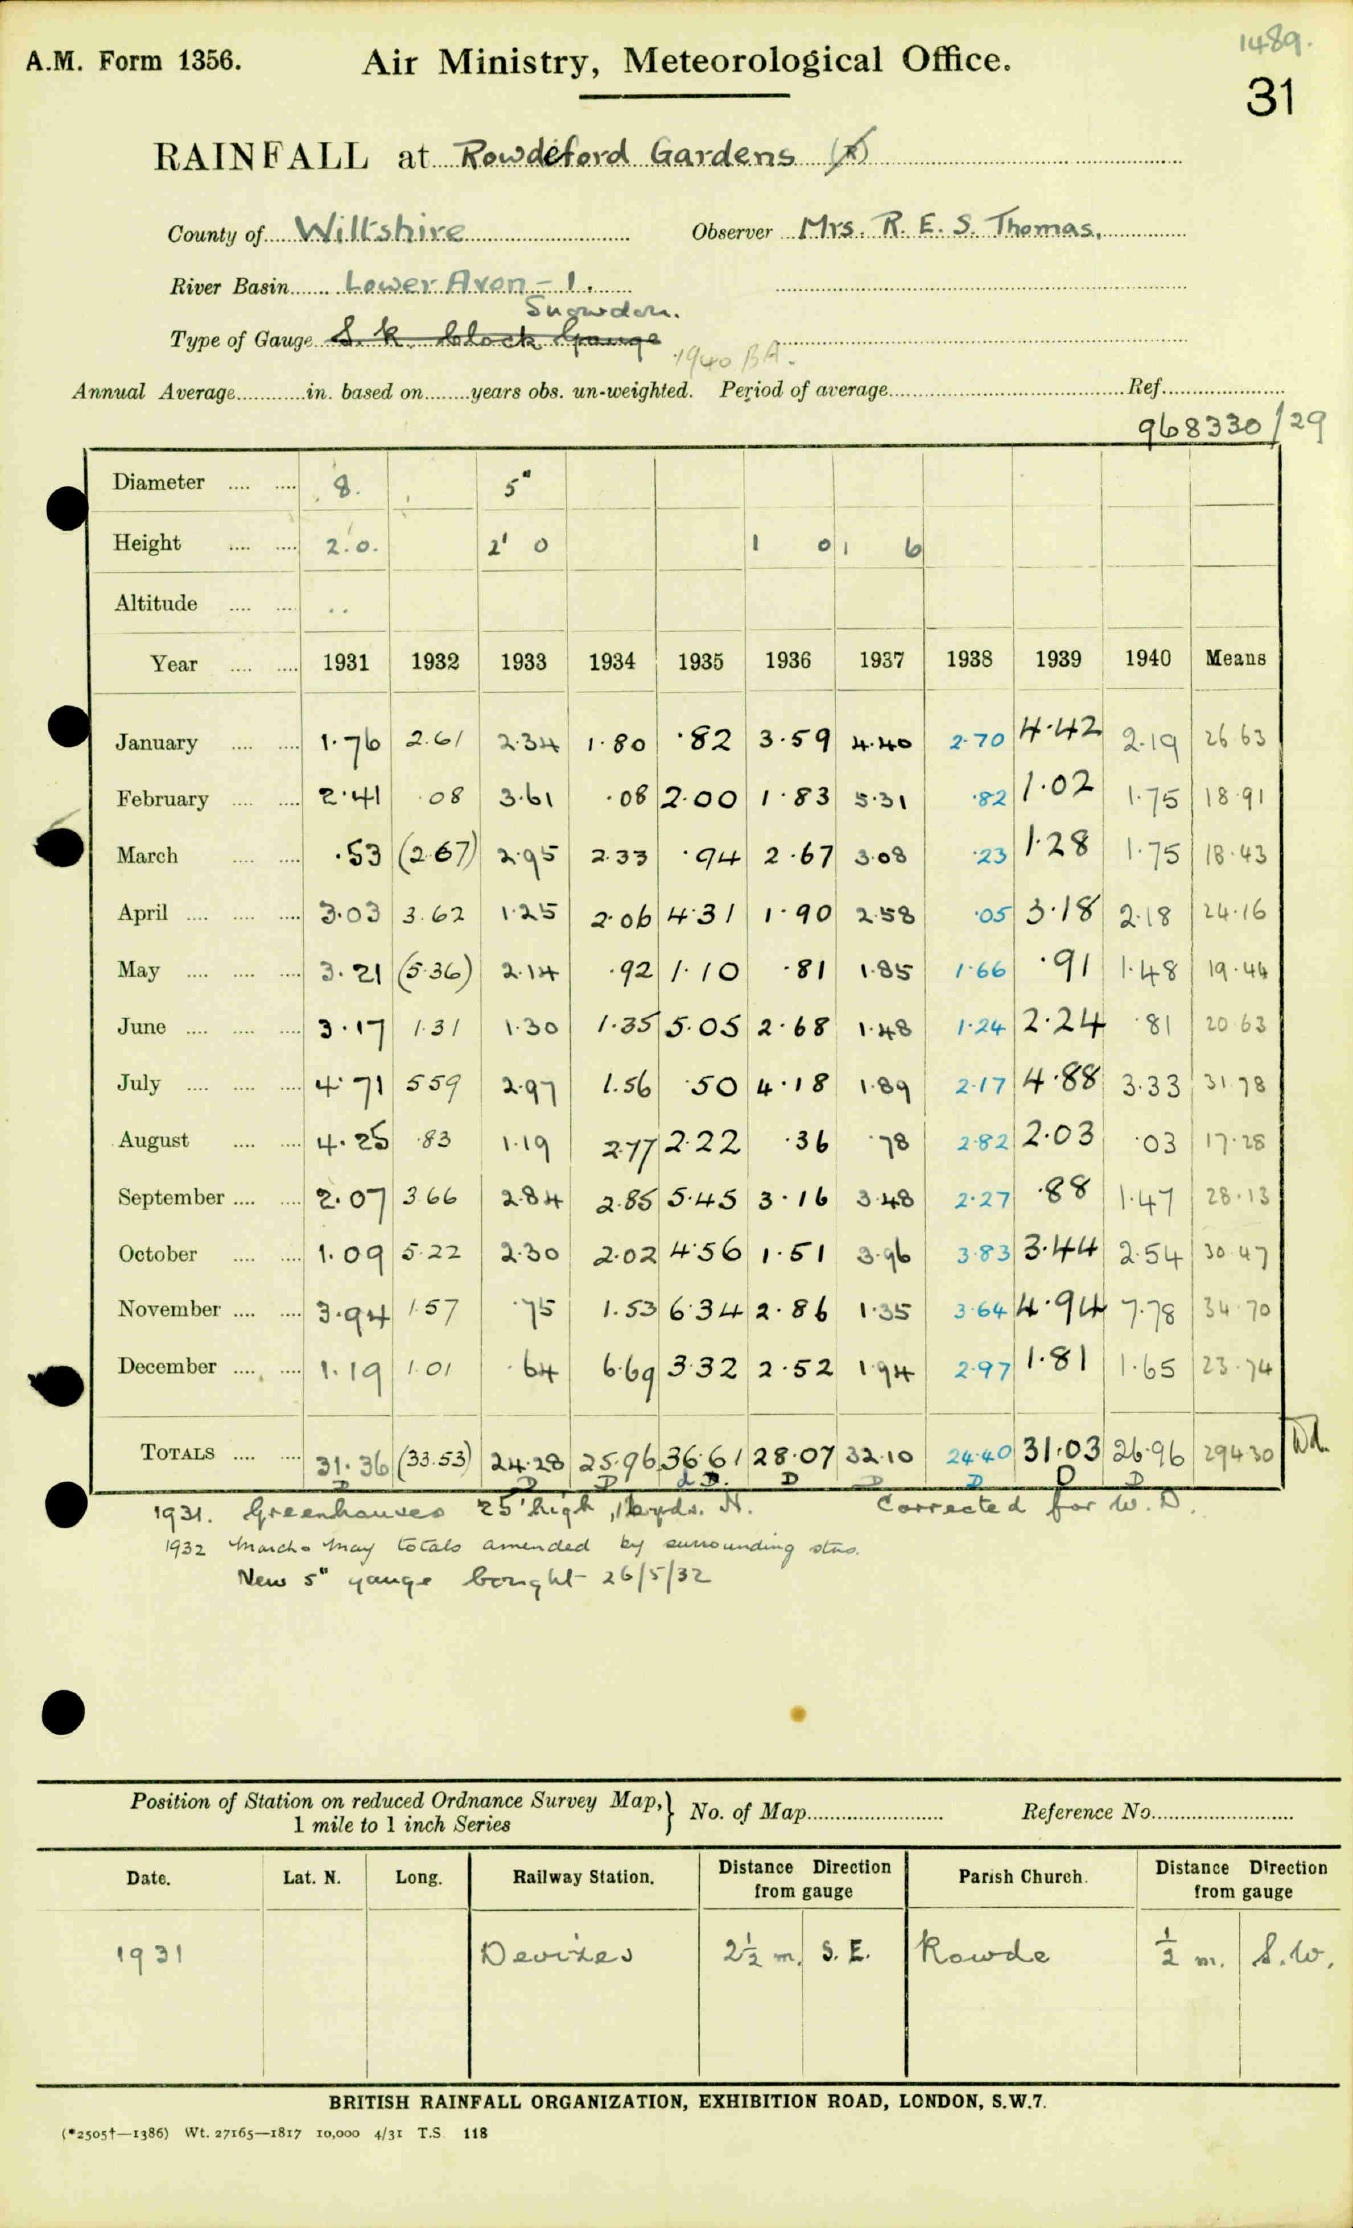 1489.
A.M. Form 1356. Air Ministry, Meteorological Office.
31
RAINFALL at Rowdeford Gardens
County of Wiltshire Observer Mrs. R. E. S. Thomas.
River Basin Lower Avon - 1.
Snowdon.
Type of Gauge S. k. block Gauge
1940 BA.
Annual Average in. based on years obs. un-weighted. Period of average Ref.
968330/29
Diameter 8. 5"
Height 2.0. 2' 0 1 0 1 6
Altitude ..
Year 1931 1932 1933 1934 1935 1936 1937 1938 1939 1940 Means
January 1.76 2.61 2.34 1.80 .82 3.59 4.40 2.70 4.42 2.19 26 63
February 2.41 .08 3.61 .08 2.00 1.83 5.31 .82 1.02 1.75 18.91
March .53 (2.67) 2.95 2.33 .94 2.67 3.08 .23 1.28 1.75 18.43
April 3.03 3.62 1.25 2.06 4.31 1.90 2.58 .05 3.18 2.18 24.16
May 3.21 (5.36) 2.14 .92 1.10 .81 1.85 1.66 .91 1.48 19.44
June 3.17 1.31 1.30 1.35 5.05 2.68 1.48 1.24 2.24 .81 20 63
July 4.71 5 59 2.97 1.56 .50 4.18 1.89 2.17 4.88 3.33 31.78
August 4.25 .83 1.19 2.77 2.22 .36 .78 2.82 2.03 .03 17.28
September 2.07 3 66 2.84 2.85 5.45 3.16 3.48 2.27 .88 1.47 28.13
October 1.09 5.22 2.30 2.02 4.56 1.51 3.96 3.83 3.44 2.54 30 47
November 3.94 1.57 .75 1.53 6.34 2.86 1.35 3.64 4.94 7.78 34.70
December 1.19 1.01 .64 6.69 3.32 2.52 1.94 2.97 1.81 1.65 23.74
TOTALS 31.36 (33.53) 24.28 25.96 36.61 28.07 32.10 24.40 31.03 26.96 294.30 Wd.
D D D d D. D D D D D
1931. Greenhouses 25' high, yds. N. Corrected for W. D.
1932 March & May totals amended by surrounding stns.
New 5" gauge bought 26/5/32
Position of Station on reduced Ordnance Survey Map, 1 mile to 1 inch Series } No. of Map Reference No.
Date. Lat. N. Long. Railway Station. Distance Direction from gauge Parish Church. Distance Direction from gauge
1931 Devizes 2½ m. S. E. Rowde ½ m. S.W.
BRITISH RAINFALL ORGANIZATION, EXHIBITION ROAD, LONDON, S.W.7.
(*2505†—1386) Wt. 27165—1817 10,000 4/31 T.S. 118